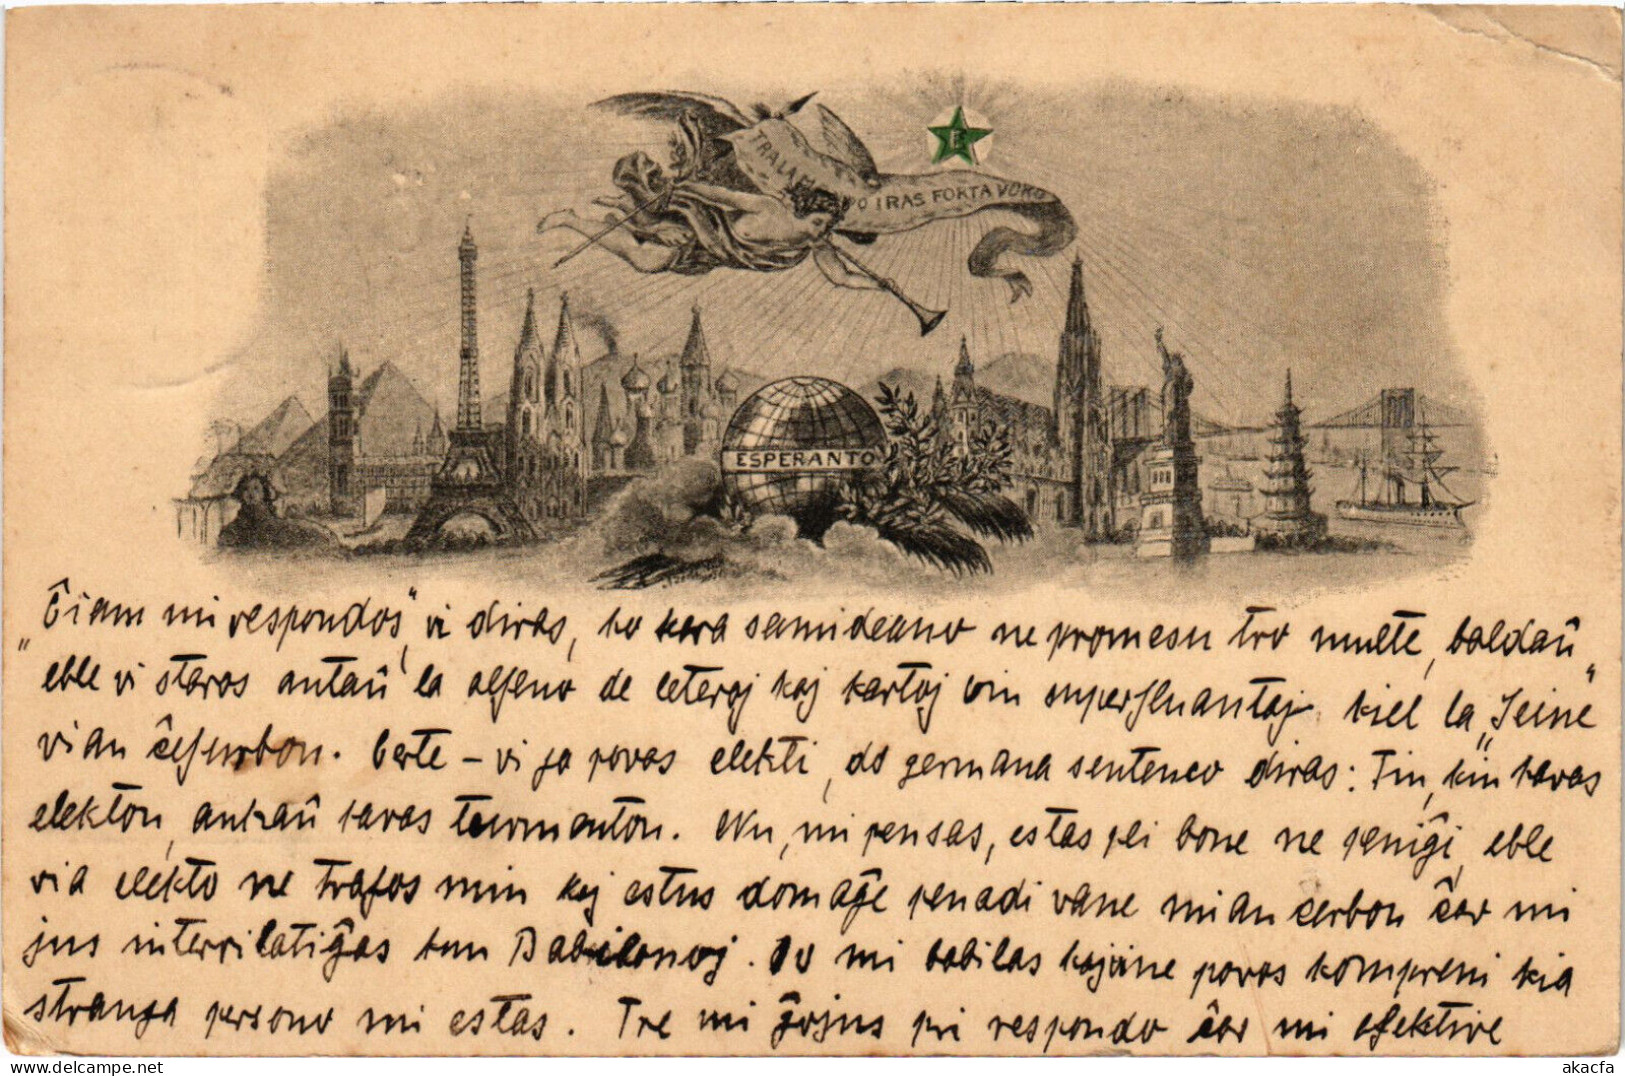 TRA LA MONDO IRAS FORTA VOKO
E
ESPERANTO
„Ĉiam mi respondos“, vi diras, ho kara samideano ne promesu tro multe, baldaŭ
eble vi staros antaŭ la alfluo de leteroj kaj kartoj vin superfluantaj kiel la „Seine“
vian ĉefurbon. Certe – vi ja povas elekti, do germana sentenco diras: Tiu, kiu havas
elekton, ankaŭ havas turmenton. Nu, mi pensas, estas pli bone ne peniĝi, eble
via elekto ne trafos min kaj estus domaĝe penadi vane mian cerbon ĉar mi
jus interrilatiĝas kun Babilonoj. Do mi babilas kaj ne povos kompreni kia
stranga persono mi estas. Tre mi ĝojus pri respondo ĉar mi efektive
akacfa